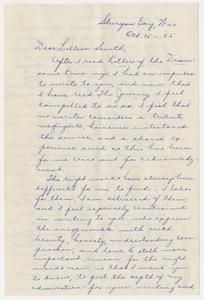 Sturgeon Bay, Wis.
Oct. 15 - 55
Dear Lillian Smith,
After I read Killers of the Dream
some time ago, I had an impulse
to write to you, and now that
I have read The Journey I feel
compelled to do so. I feel that
no writer considers a tribute
negligible, however unlettered
the source, and a shared ex-
perience such as this has been
for me cries out for acknowledg-
ment.
The right words have always been
difficult for me to find. I labor
for them, I am enamored of them,
and I feel especially
in writing to you, who express
the inexpressible with such
beauty, honesty, understanding, com-
passion, and love. A still more
important reason for the right
words now is that I want you
to know, to feel the depth of my
admiration for your writing and